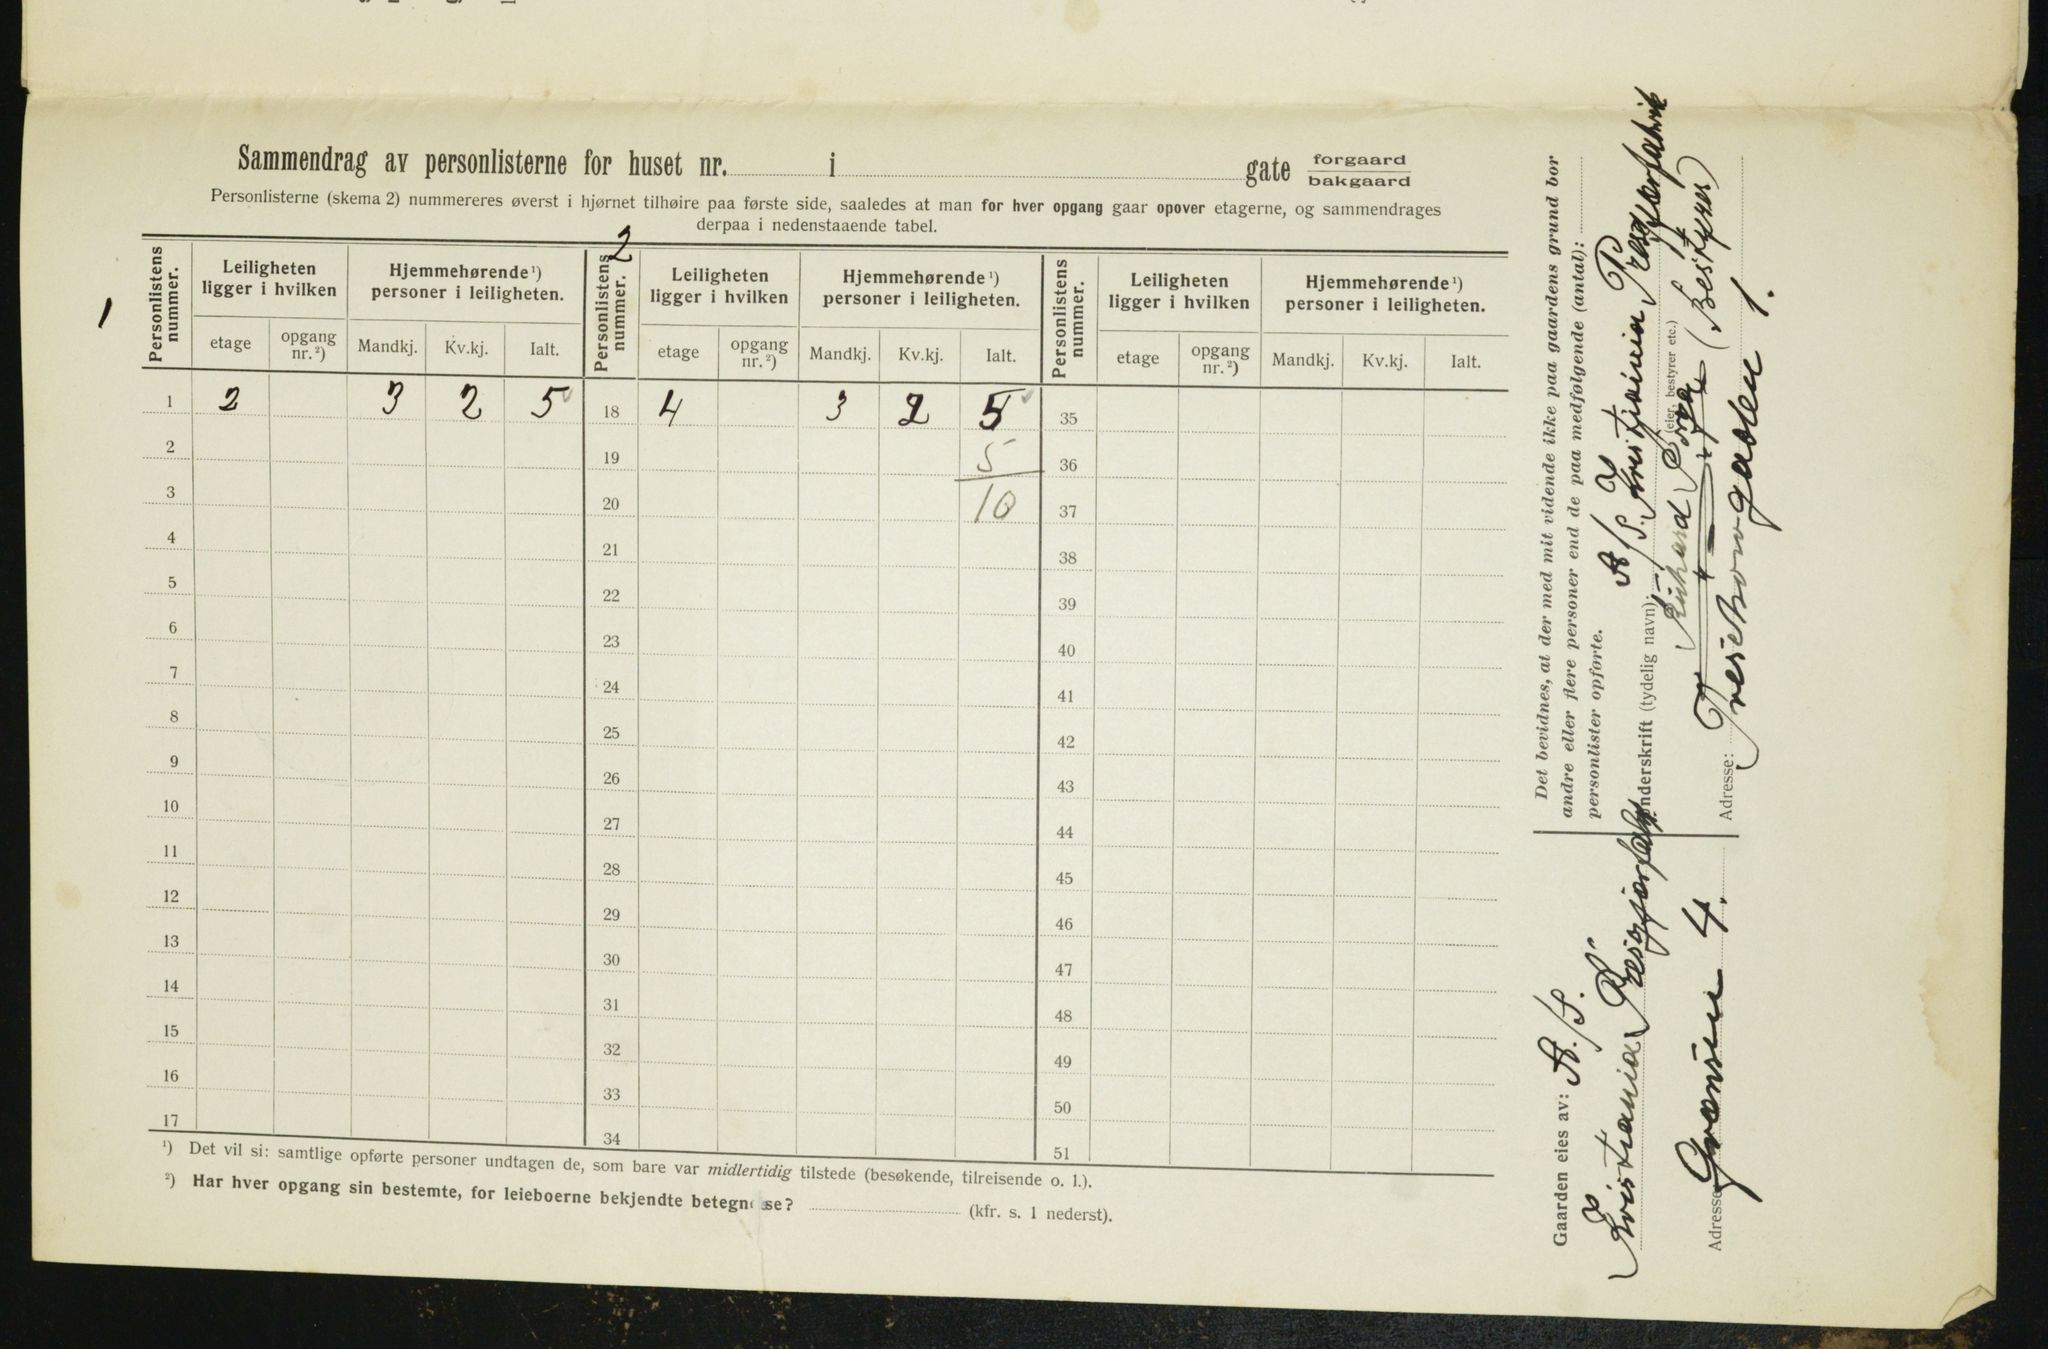 Sammendrag av personlisterne for huset nr. i gate forgaard bakgaard
Personlisterne (skema 2) nummereres øverst i hjørnet tilhøire paa første side, saaledes at man for hver opgang gaar opover etagerne, og sammendrages
derpaa i nedenstaaende tabel.
1
2
Personlistens nummer. Leiligheten ligger i hvilken Hjemmehørende ¹) personer i leiligheten. Personlistens nummer. Leiligheten ligger i hvilken Hjemmehørende ¹) personer i leiligheten. Personlistens nummer. Leiligheten ligger i hvilken Hjemmehørende ¹) personer i leiligheten.
etage opgang nr. ²) Mandkj. Kv.kj. Ialt. etage opgang nr. ²) Mandkj. Kv.kj. Ialt. etage opgang nr. ²) Mandkj. Kv.kj. Ialt.
1 2 3 2 5 18 4 3 2 5 35
2 19 5 36
3 20 10 37
4 21 38
5 22 39
6 23 40
7 24 41
8 25 42
9 26 43
10 27 44
11 28 45
12 29 46
13 30 47
14 31 48
15 32 49
16 33 50
17 34 51
¹) Det vil si: samtlige opførte personer undtagen de, som bare var midlertidig tilstede (besøkende, tilreisende o. l.).
²) Har hver opgang sin bestemte, for leieboerne bekjendte betegnelse? (kfr. s. 1 nederst).
Gaarden eies av: A./S.
Kristiania
Adresse: Grænsen 4.
Det bevidnes, at der med mit vidende ikke paa gaardens grund bor
andre eller flere personer end de paa medfølgende (antal):
personlister opførte.
A/S. Kristiania
Underskrift (tydelig navn):
(eier, bestyrer etc.)
Rickard (Bestyrer)
Adresse: